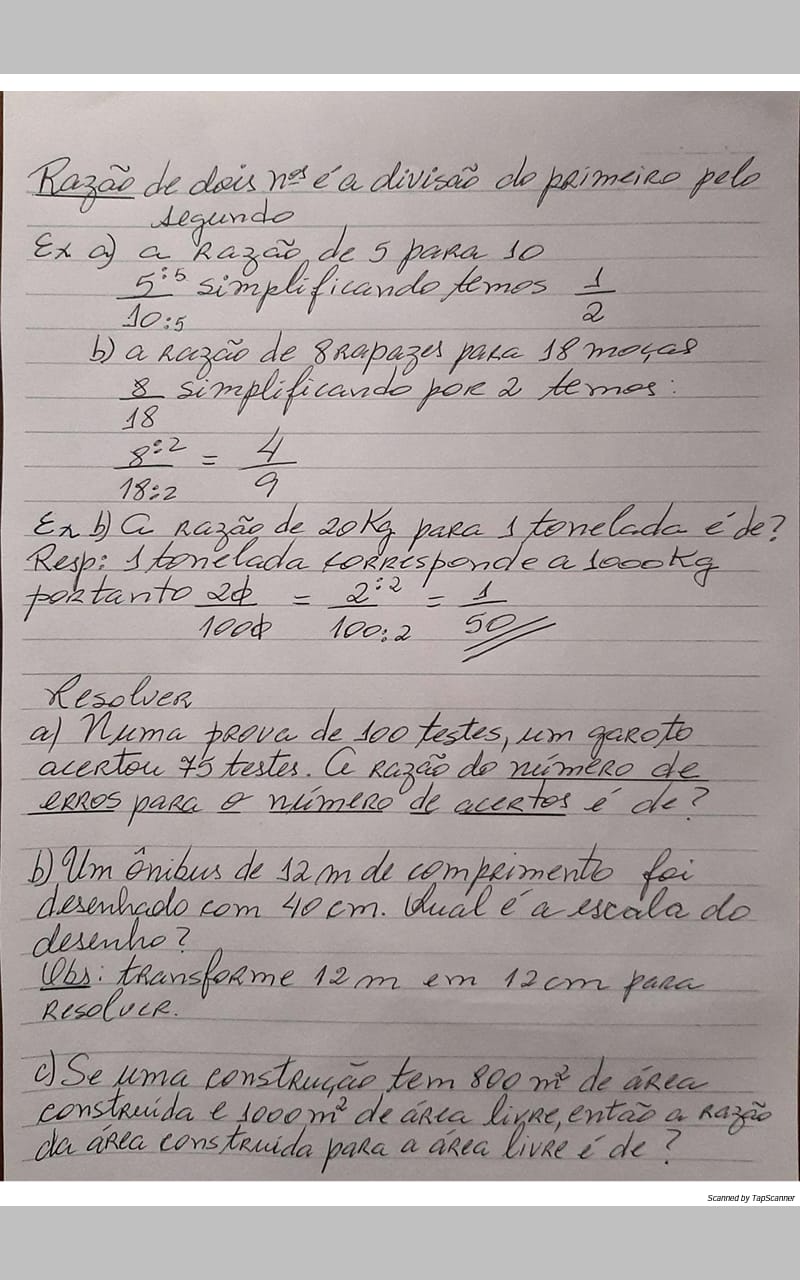 Razão de dois nos é a divisão do primeiro pelo
segundo
Ex a) a razão de 5 para 10
5:5 simplificando temos 1
10:5 2
b) a razão de 8 rapazes para 18 moças
8 simplificando por 2 temos:
18
8:2 = 4
18:2 9
Ex b) A razão de 20Kg para 1 tonelada é de?
Resp: 1 tonelada corresponde a 1000Kg
portanto 20 = 2:2 = 1
1000 100:2 50
Resolver
a) Numa prova de 100 testes, um garoto
acertou 75 testes. A razão do número de
erros para o número de acertos é de?
b) Um ônibus de 12 m de comprimento foi
desenhado com 40 cm. Qual é a escala do
desenho?
Obs: transforme 12 m em 12 cm para
resolver.
c) Se uma construção tem 800 m² de área
construída e 1000 m² de área livre, então a razão
da área construída para a área livre é de?
Scanned by TapScanner